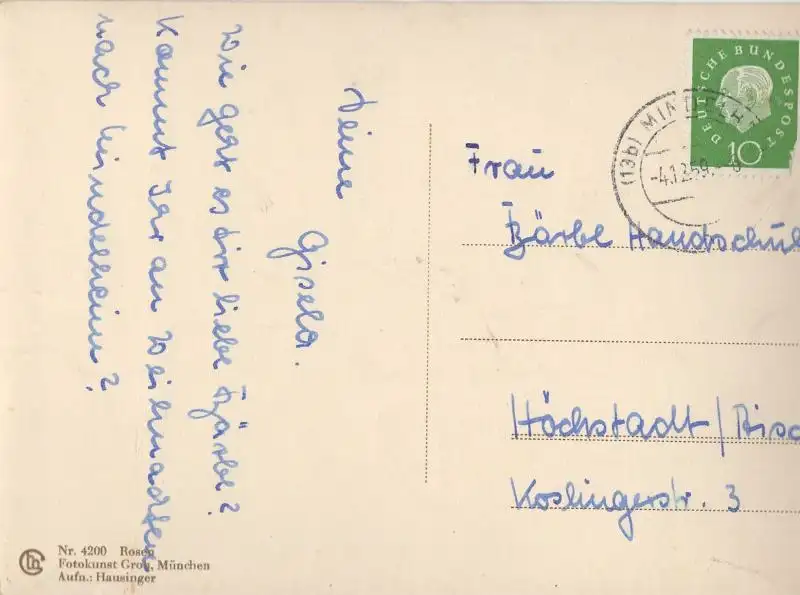 Wie geht es Dir liebe Bärbe?
Kommt Ihr an Weihnachten
nach Mindelheim?
Deine
Gisela.
DEUTSCHE BUNDESPOST
10
(13b) MINDELH
-4.12.59.-8
Frau
Bärbe Handschuh
Höchstadt/Aisc
Koslingerstr. 3
Nr. 4200 Rosen
Fotokunst Groh, München
Aufn.: Hausinger